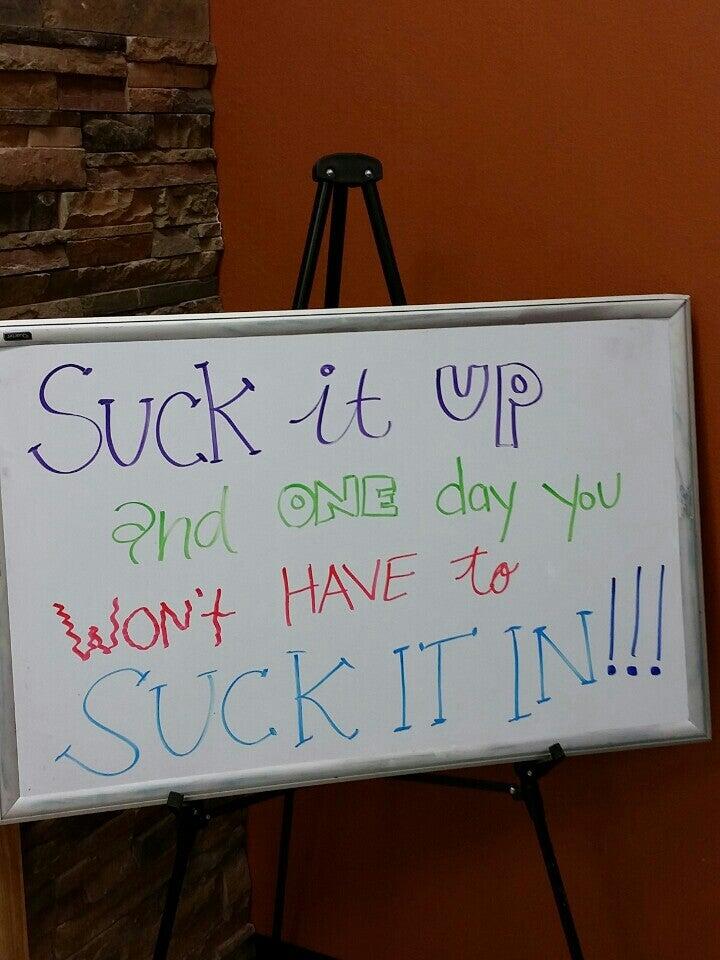 Suck it UP
and ONE day you
WON't HAVE to
SUCK IT IN!!!